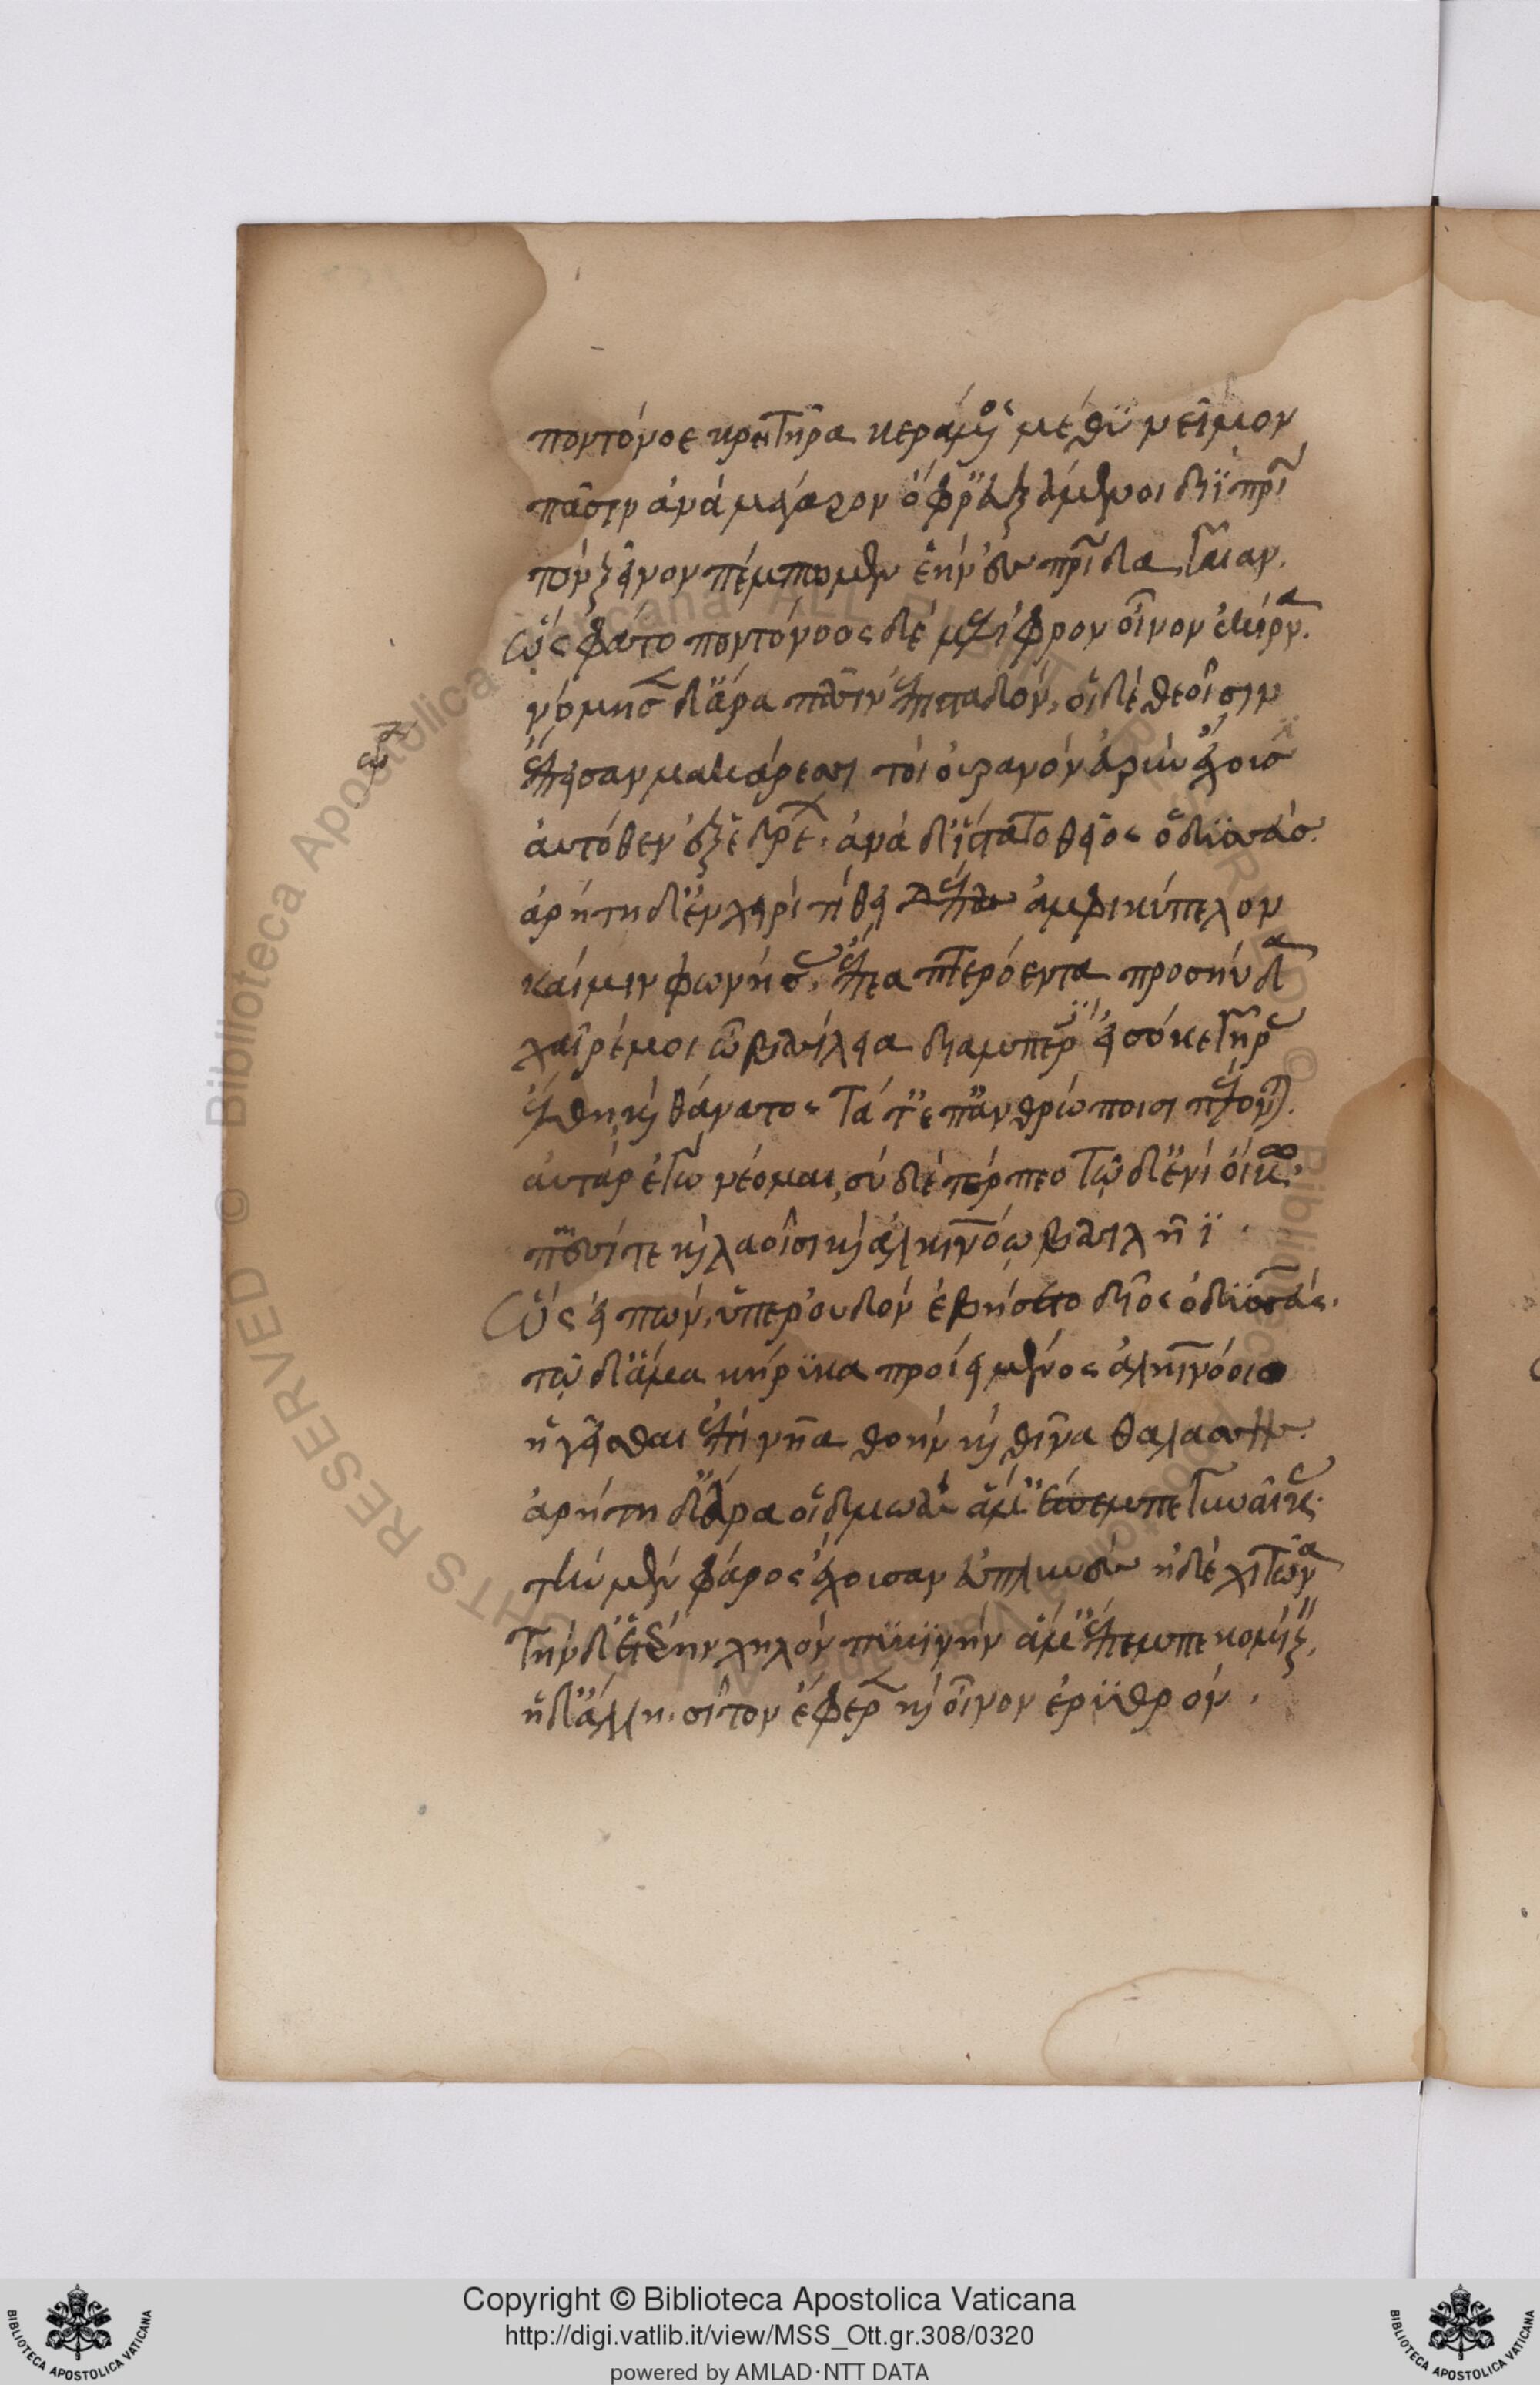 ποντόνοε κρητῆρα κεραμος μέθϋ νεῖμον
πᾶσιν ἀνά μέγαρον ὄφρ εὐξάμενοι διῒ πρι
τόν ξεῖνον πέμπωμεν ἑήν ἐσ πρίδα γαῖαν.
ὥς φάτο ποντόνοος δέ μελίφρον οἶνον ἐκίρνα.
νόμησ δ ἄρα πᾶσιν ἐπισταδόν, οἱ δέ θεοῖσιν
ἔπεισαν μακάρεσσι τοί οὐρανόν εὐρύν ἔχουσ
αὐτόθεν ἐξ ἑδρέ. ἀνά δ ἵστατο θεῖος ὀδϋσσεύσ.
ἀρήτη δ ἐν χειρί τίθει δέπασ ἀμφικύπελον
καί μιν φωνήσ. ἔπεα πτερόεντα προσηύδα
χαῖρέ μοι ὦ βασίλεια διαμπερ εἰσόκε γῆρ
ἔλθη κ θάνατος τά τ ἐπ ἀνθρώποισι πέλονται.
αὐτάρ ἐγώ νέομαι, σύ δέ τέρπεο τῷδ ἐνί οἴκω.
παισί τε κ λαοῖσι κ ἀλκινόω βασιλῆϊ.
ὥς εἰπών, ὑπέρ οὐδόν ἐβήσετο δῖος ὀδϋσσεύς.
τῷ δ ἅμα κήρϋκα προίει μένος ἀλκινόοιο
ἡγεῖσθαι ἐπί νῆα θοήν κ θῖνα θαλάσσησ.
ἀρήτη δ ἄρα οἱ δμωάσ ἅμ ἔπεμπε γυναῖκ.
τήν μέν φάρος ἔχουσαν ἐϋπλυνέσ ἠδέ χιτῶνα
τήν δ ἑτέρην χηλόν πϋκϊνήν ἅμ ἔπεμπε κομίζ.
ἡ δ ἄλλη. σῖτον ἔφερ κ οἶνον ἐρϋθρόν.
Copyright © Biblioteca Apostolica Vaticana
http://digi.vatlib.it/view/MSS_Ott.gr.308/0320
powered by AMLAD·NTT DATA